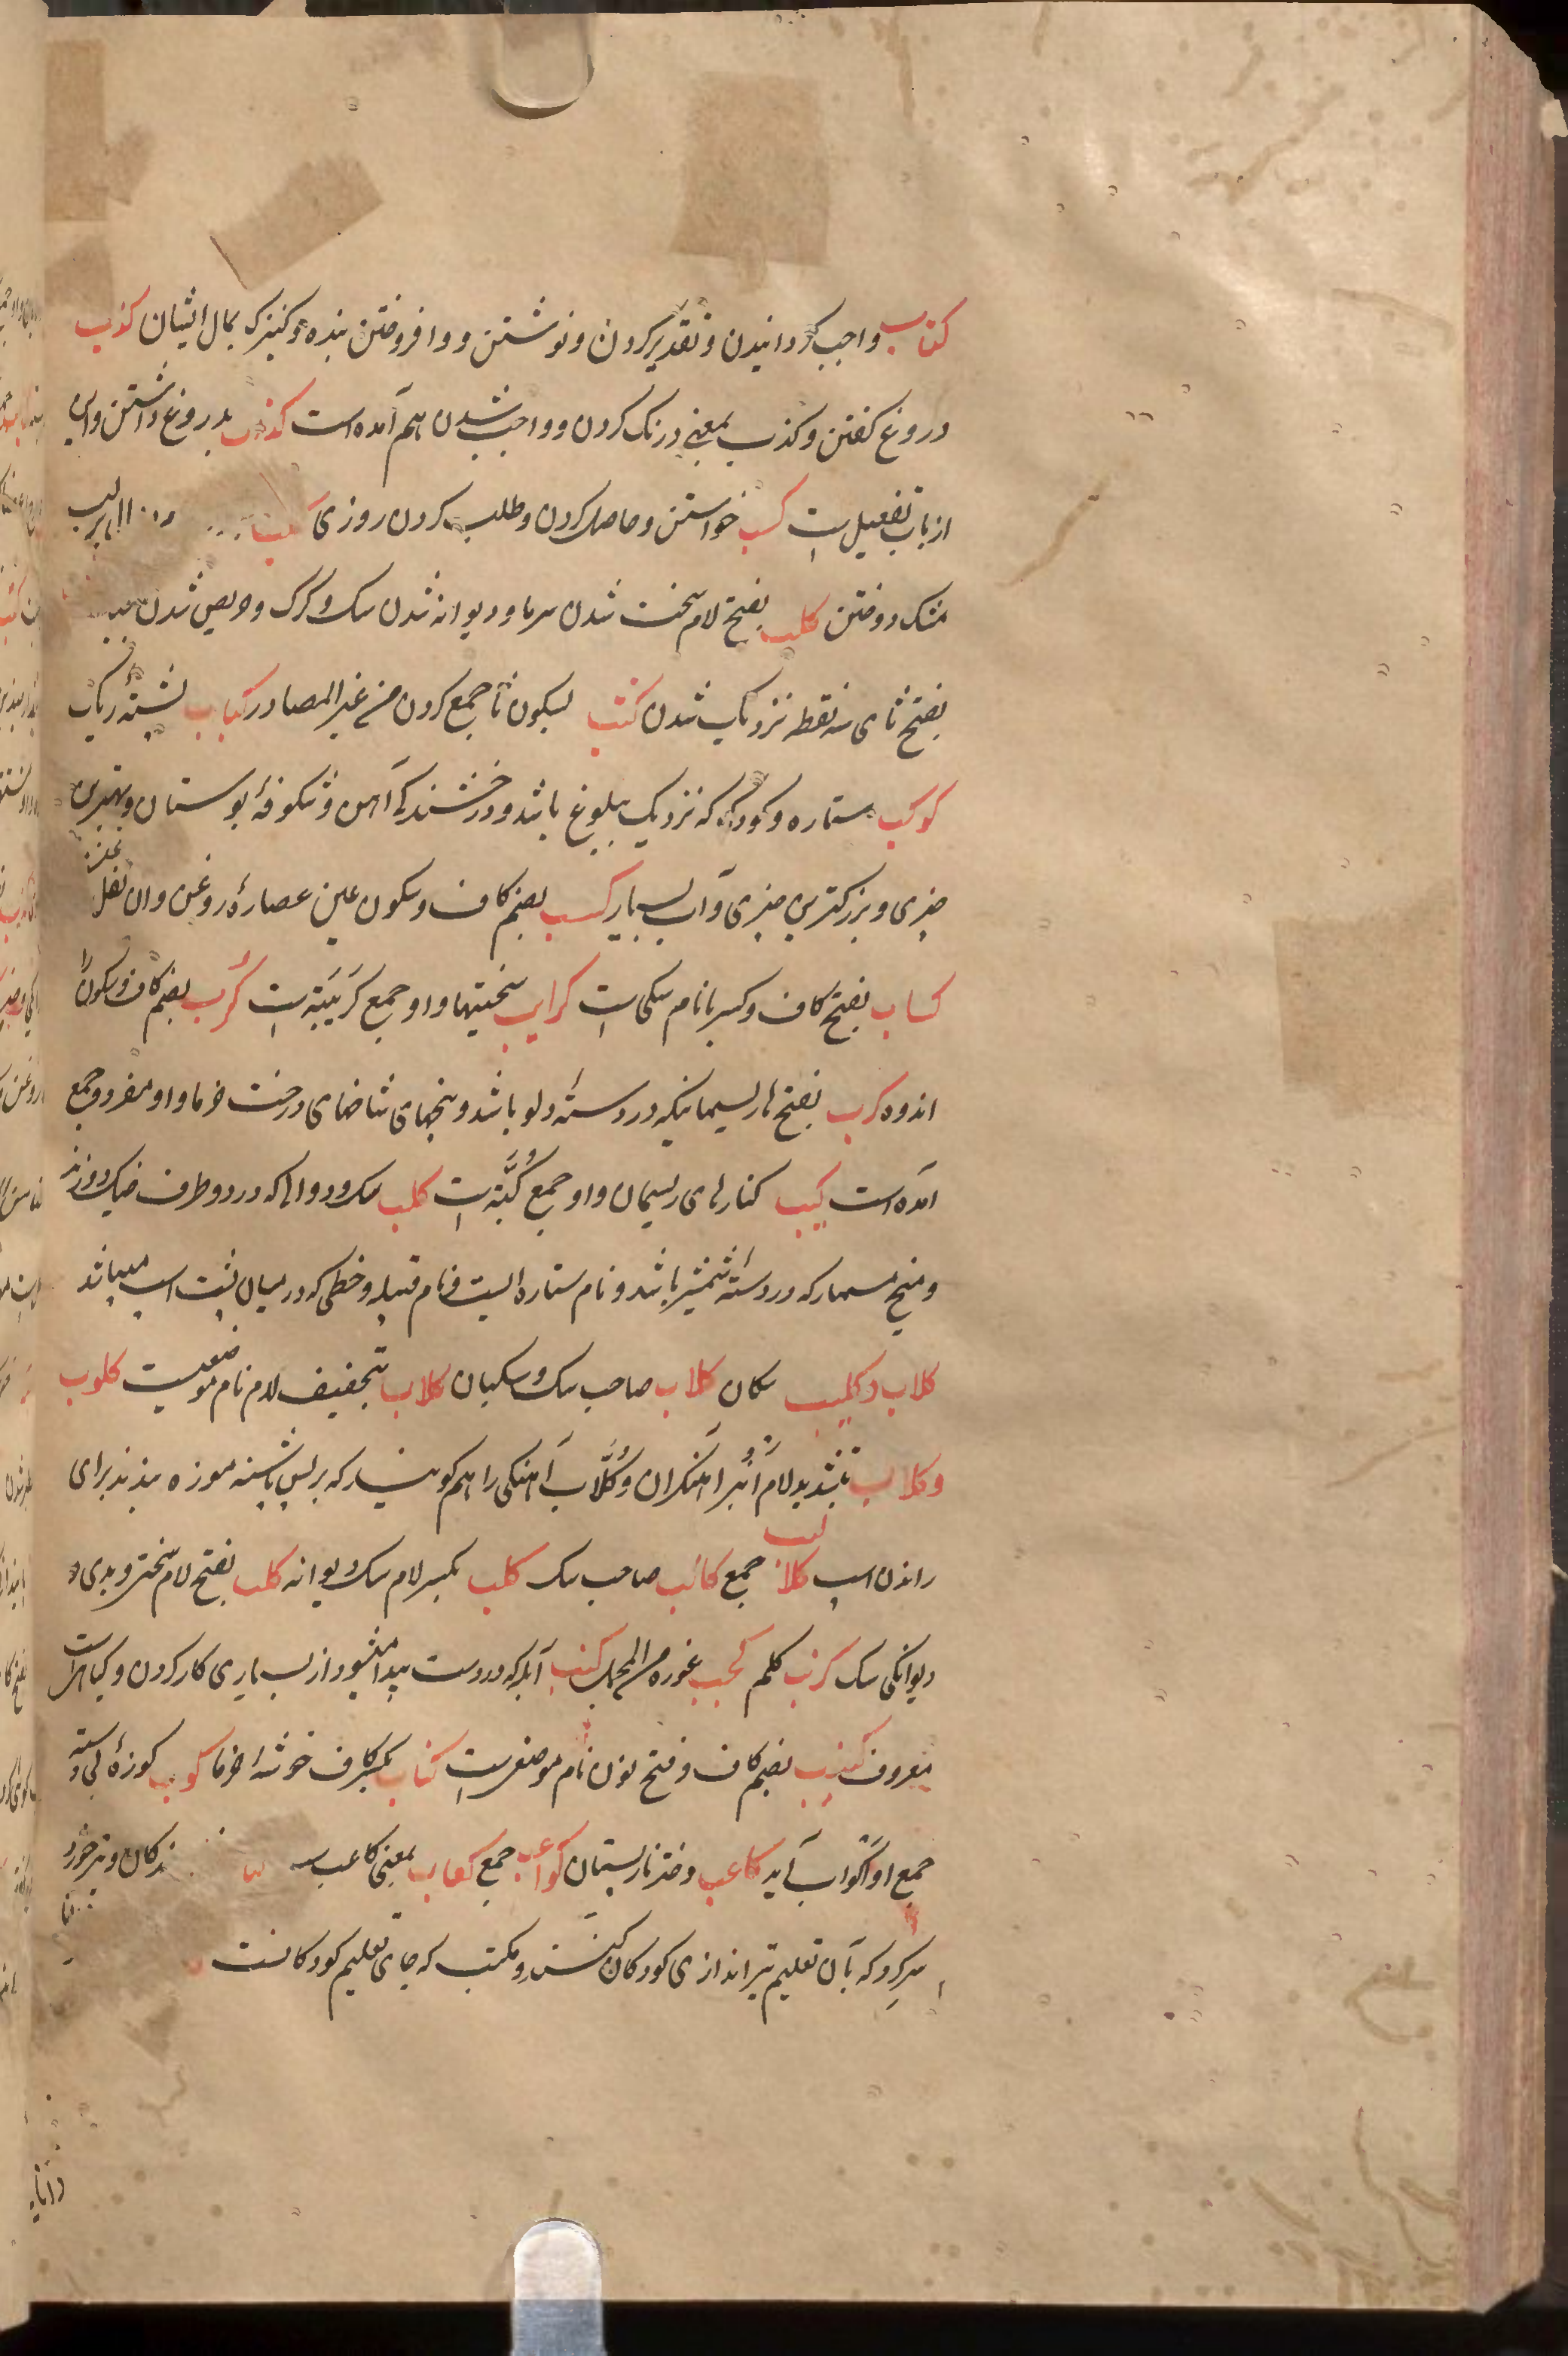 کتاب واجب کردانیدن و تقدیر کردن و نوشتن و وافروختن بنده و کنیزک بمال ایشان کذب
دروغ کفتن و کذب بمعنی درنک کردن و واجب شدن هم آمده است کذاب بدروغ داشتن و این
از باب تفعیل است کسب خواستن و حاصل کردن و طلب کردن روزی
مشک دوختن کلب بفتح لام سخت شدن سرما و دیوانه شدن سک و کرک و حریص شدن
بفتح ثای سه نقطه نزدیک شدن کثب بسکون ثا جمع کردن من غیر المصادر کثاب پشتهٔ ریک
کوکب ستاره و کودک که نزدیک ببلوغ باشد و درخشندکی آهن و شکوفهٔ بوستان و بهترین
چیزی و بزرکترین چیزی و آب بسیار کسب بضم کاف و سکون عین عصارهٔ روغن و آن ثفل
کساب بفتح کاف و کسر با نام سکی است کرایب سختیها و او جمع کریبة است کرب بضم کاف و سکون را
اندوه کرب بفتح را ریسمانیکه در دستهٔ دلو باشد و بیخهای شاخهای درخت خرما و او مفرد و جمع
آمده است کبب کنارهای ریسمان و او جمع کُبَّة است کلب سک و دوالی که در دو طرف خیک دوزند
و میخ مسمار که در دستهٔ شمشیر باشد و نام ستاره ایست و نام قبیله و خطی که در میان پشت اسب میباشد
کلاب و کلیب سکان کلاب صاحب سک و سکبان کلاب بتخفیف لام نام موضعیست کلوب
و کلاب بتشدید لام انبر آهنکران و کُلَّاب آهنکی را هم کویند که بر پس پاشنه موزه بزنند برای
راندن اسب کلالب جمع کالب صاحب سک کلب بکسر لام سک دیوانه کلب بفتح لام سختی و بدی و
دیوانکی سک کرنب کلم کحب غوره من المجمل کنب آبله که در دست پیدا میشود از بسیاری کار کردن و کیاهیست
معروف کنب بضم کاف و فتح نون نام موضعی است کناب بکسر کاف خوشهٔ خرما کوب کوزهٔ بی دسته
جمع او اکواب آید کاعب دختر نارپستان کواعب جمع کعاب بمعنی کاعب
سرکرد که بآن تعلیم تیراندازی کودکان کنند و مکتب که جای تعلیم کودکانست